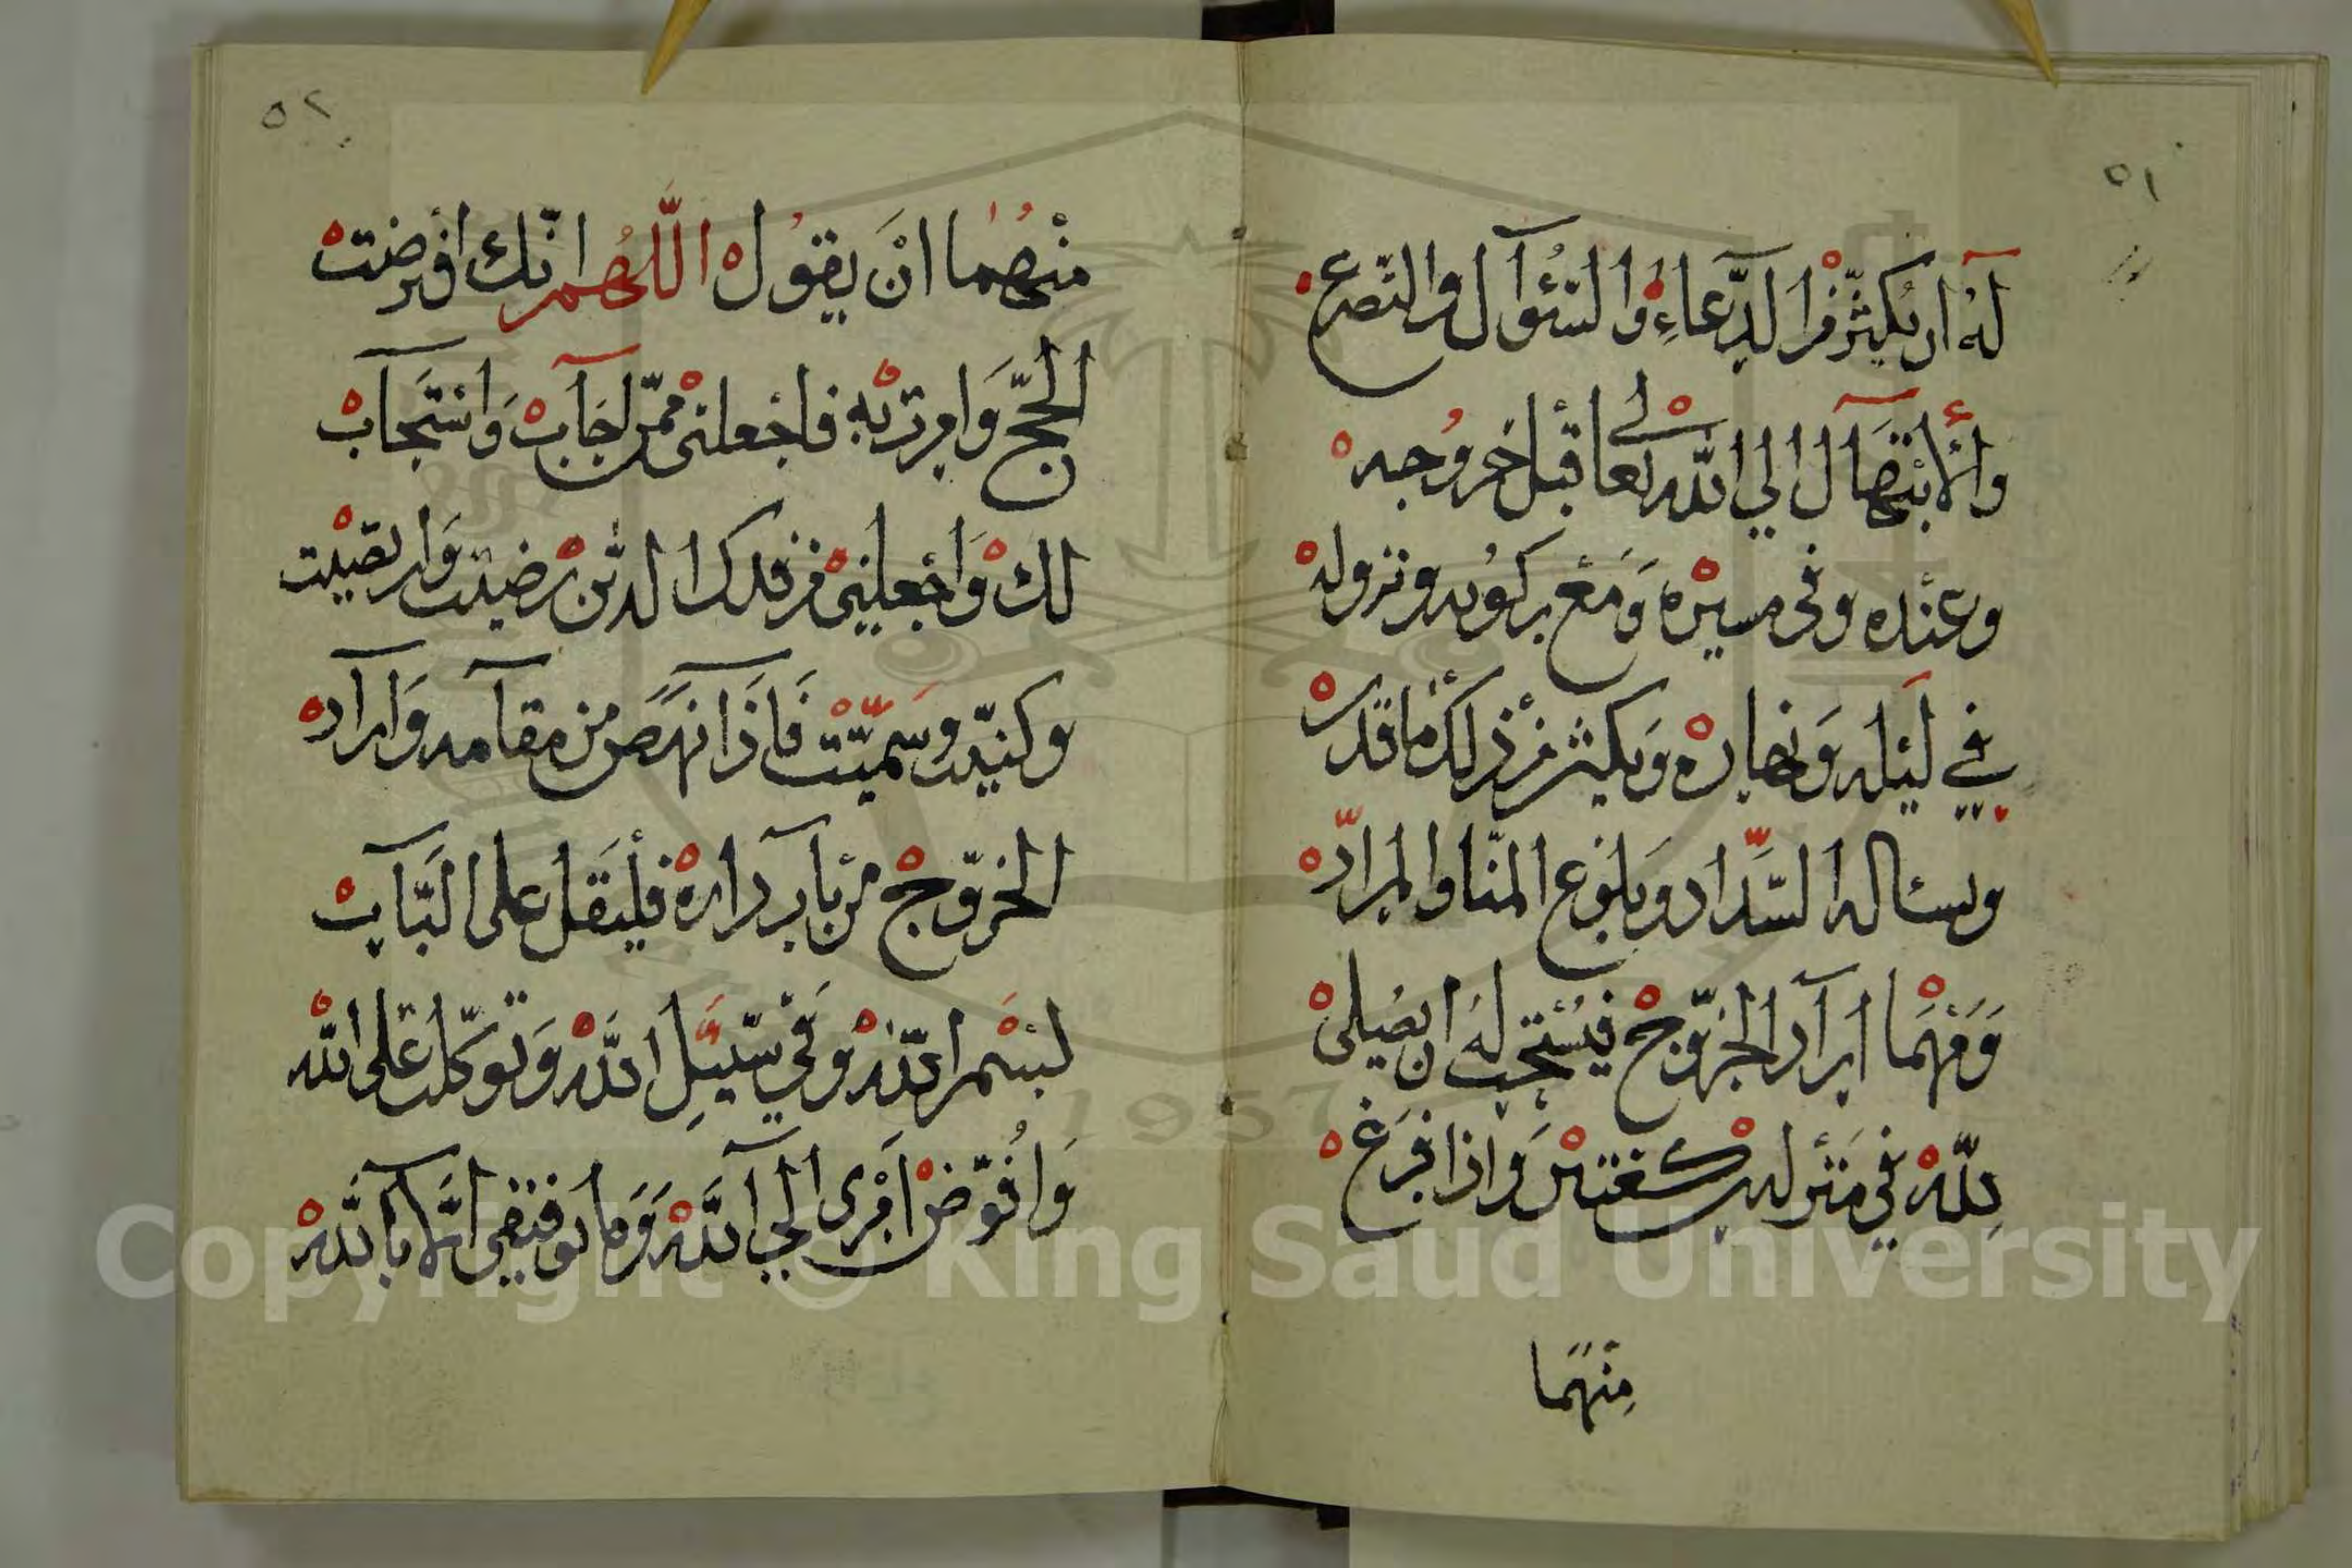 ٥١
له ان يكثر من الدعاء والسؤال والتضرع
والابتهال الي الله تعالى قبل خروجه
وعنده وفي مسيره ومع ركوبه ونزوله
في ليله ونهاره ويكثر من ذلك ما قدر
ويسئاله السداد وبلوغ المنا والمراد
ومهما اراد الخروج فيستحب له ان يصلى
لله في منزله ركعتين واذا فرغ
منهما
٥٢
منهما ان يقول اللهم انك افرضت
الحج وامرت به فاجعلنى ممن اجاب واستجاب
لك واجعلنى من وفدك الذين رضيت وارتضيت
وكنيت وسميت فاذا نهض من مقامه واراد
الخروج من باب داره فليقل على الباب
بسم الله وفي سبيل الله وتوكلت على الله
وافوض امرى الي الله وما توفيقى الا بالله
Copyright © King Saud University
1957